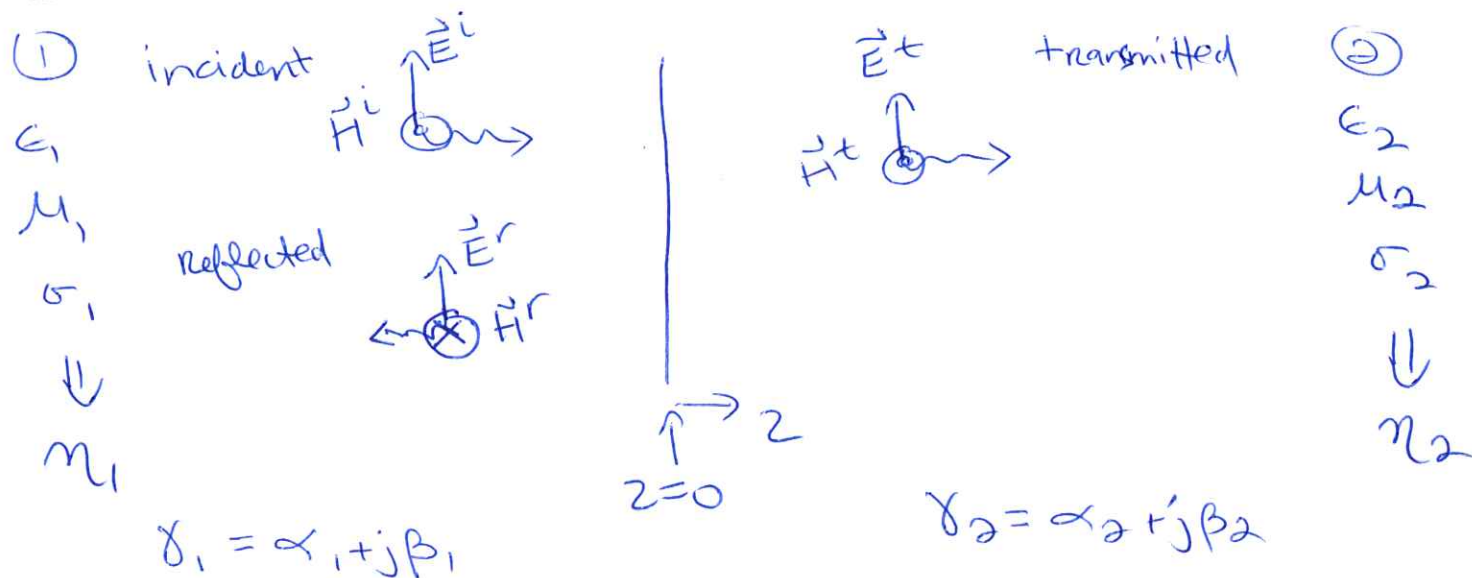 ① incident E⃗ⁱ
H⃗ⁱ
ε₁
μ₁
σ₁
⇓
η₁
reflected E⃗ʳ
H⃗ʳ
γ₁ = α₁ + jβ₁
z
z=0
E⃗ᵗ transmitted ②
H⃗ᵗ
ε₂
μ₂
σ₂
⇓
η₂
γ₂ = α₂ + jβ₂